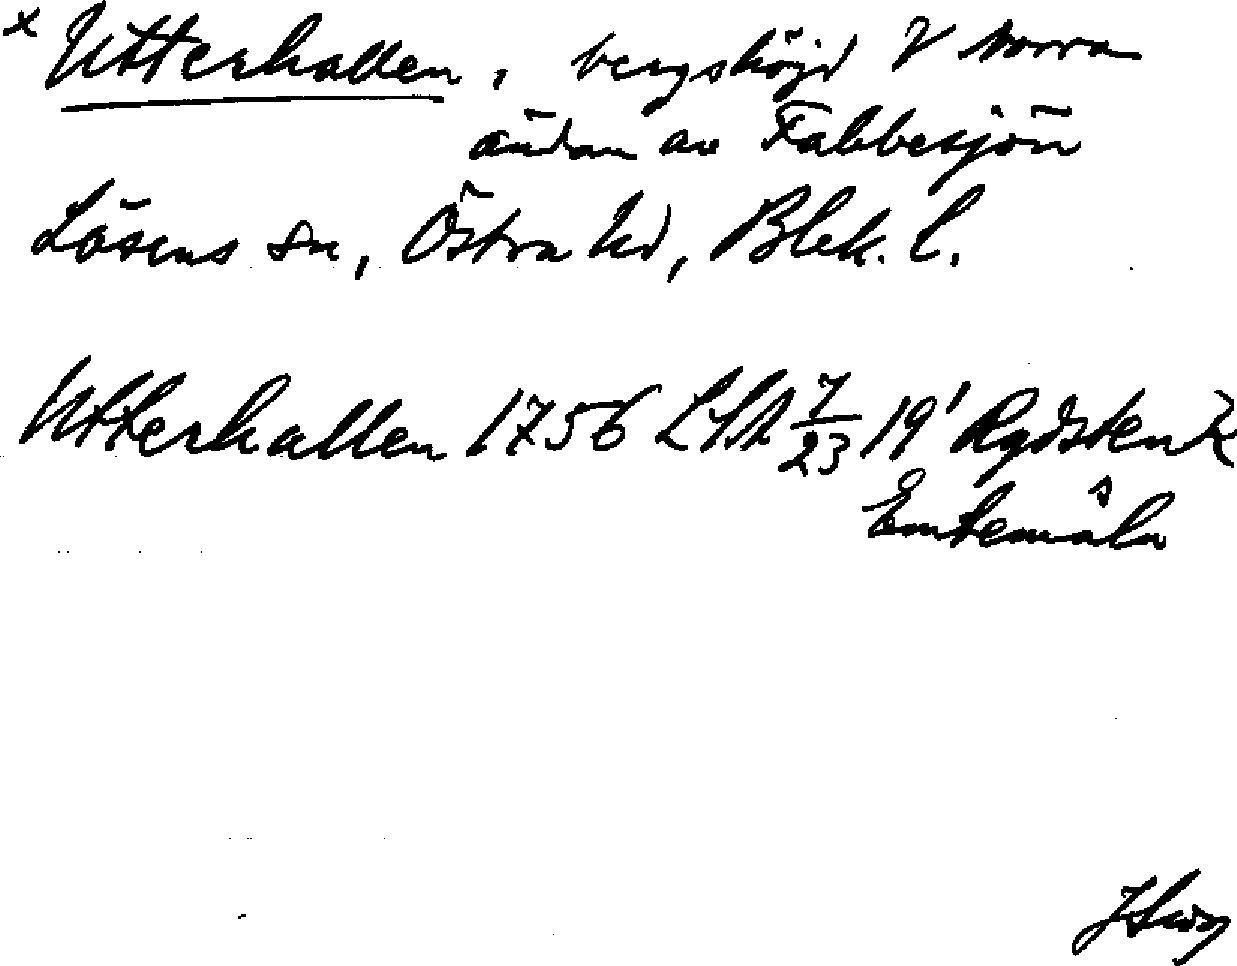 x Utterhallen, bergshöjd V norra
ändan av Fabbesjön
Lösens sn, Östra hd, Blek. l.
Utterhallen 1756 LSA 7/23 19' Rydsten
Emtemåla